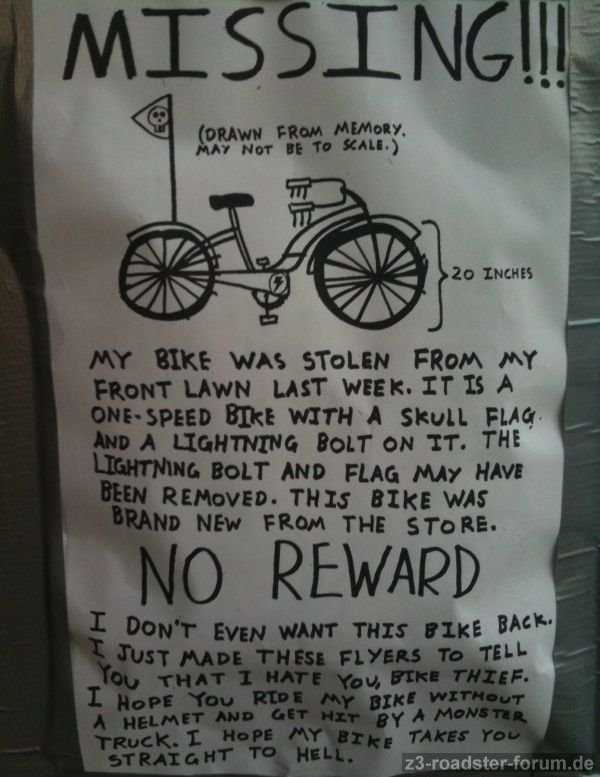 MISSING!!!
(DRAWN FROM MEMORY.
MAY NOT BE TO SCALE.)
20 INCHES
MY BIKE WAS STOLEN FROM MY
FRONT LAWN LAST WEEK. IT IS A
ONE-SPEED BIKE WITH A SKULL FLAG
AND A LIGHTNING BOLT ON IT. THE
LIGHTNING BOLT AND FLAG MAY HAVE
BEEN REMOVED. THIS BIKE WAS
BRAND NEW FROM THE STORE.
NO REWARD
I DON'T EVEN WANT THIS BIKE BACK.
I JUST MADE THESE FLYERS TO TELL
YOU THAT I HATE YOU, BIKE THIEF.
I HOPE YOU RIDE MY BIKE WITHOUT
A HELMET AND GET HIT BY A MONSTER
TRUCK. I HOPE MY BIKE TAKES YOU
STRAIGHT TO HELL.
z3-roadster-forum.de